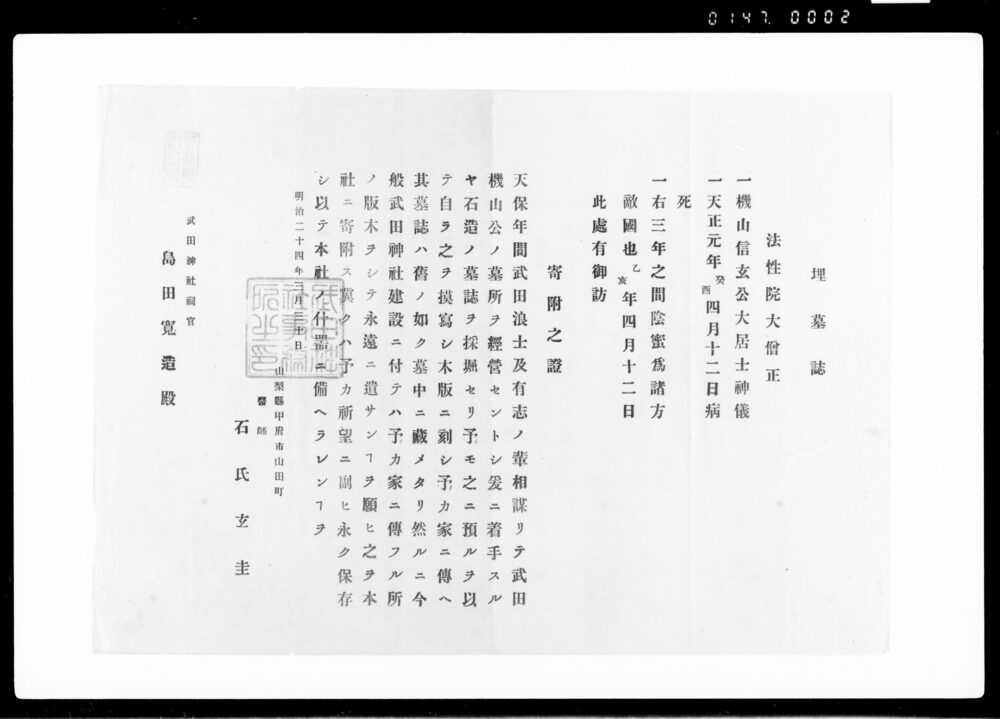 0147. 0002
埋墓誌
法性院大僧正
一機山信玄公大居士神儀
一天正元年癸酉四月十二日病
死
一右三年之間陰蜜爲諸方
敵國也乙亥年四月十二日
此處有御訪
寄附之證
天保年間武田浪士及有志ノ輩相謀リテ武田
機山公ノ墓所ヲ經營セントシ爰ニ着手スル
ヤ石造ノ墓誌ヲ採堀セリ予モ之ニ預ルヲ以
テ自ラ之ヲ摸寫シ木版ニ刻シ予カ家ニ傳ヘ
其墓誌ハ舊ノ如ク墓中ニ藏メタリ然ルニ今
般武田神社建設ニ付テハ予カ家ニ傳フル所
ノ版木ヲシテ永遠ニ遺サンヿヲ願ヒ之ヲ本
社ニ寄附ス冀クハ予カ祈望ニ副ヒ永ク保存
シ以テ本社ノ什器ニ備ヘラレンヿヲ
明治二十四年三月三十日
山梨縣甲府市山田町
醫師
石氏玄圭
武田神社祠官
島田寬造殿